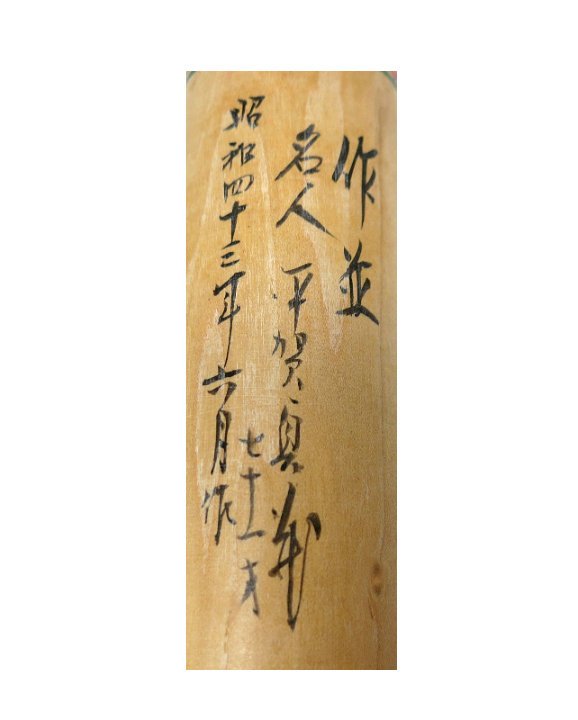 作並
名人 平賀貞蔵
七十一才
昭和四十三年六月作